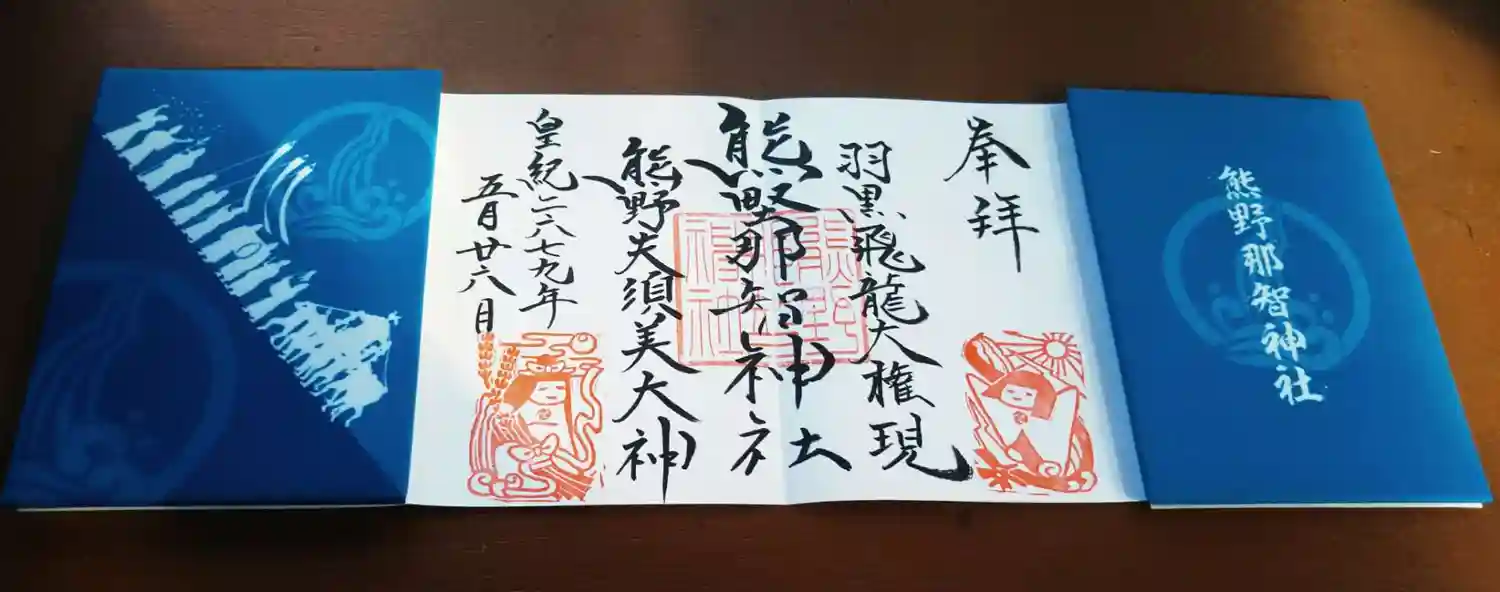 熊野那智神社
奉拝
羽黒飛龍大権現
熊野那智神社
熊野夫須美大神
皇紀二六七九年
五月廿六日